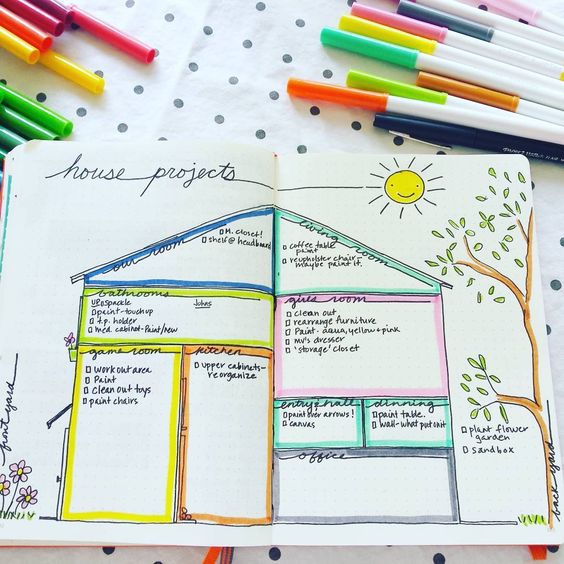 house projects
our room
M. closet!
shelf @ headboard
living room
coffee table
paint
reupholster chair-
maybe paint it.
bathrooms
UP: Spackle
paint-touchup
t.p. holder
med. cabinet-Paint/new
Johns
girls room
clean out
rearrange furniture
Paint-aqua, yellow + pink
MV's dresser
'storage' closet
game room
work out area
Paint
clean out toys
paint chairs
kitchen
upper cabinets-
reorganize
entry & hall
paint over arrows!
canvas
dinning
paint table.
wall-what put on it
office
front yard
plant flower
garden
sandbox
back yard